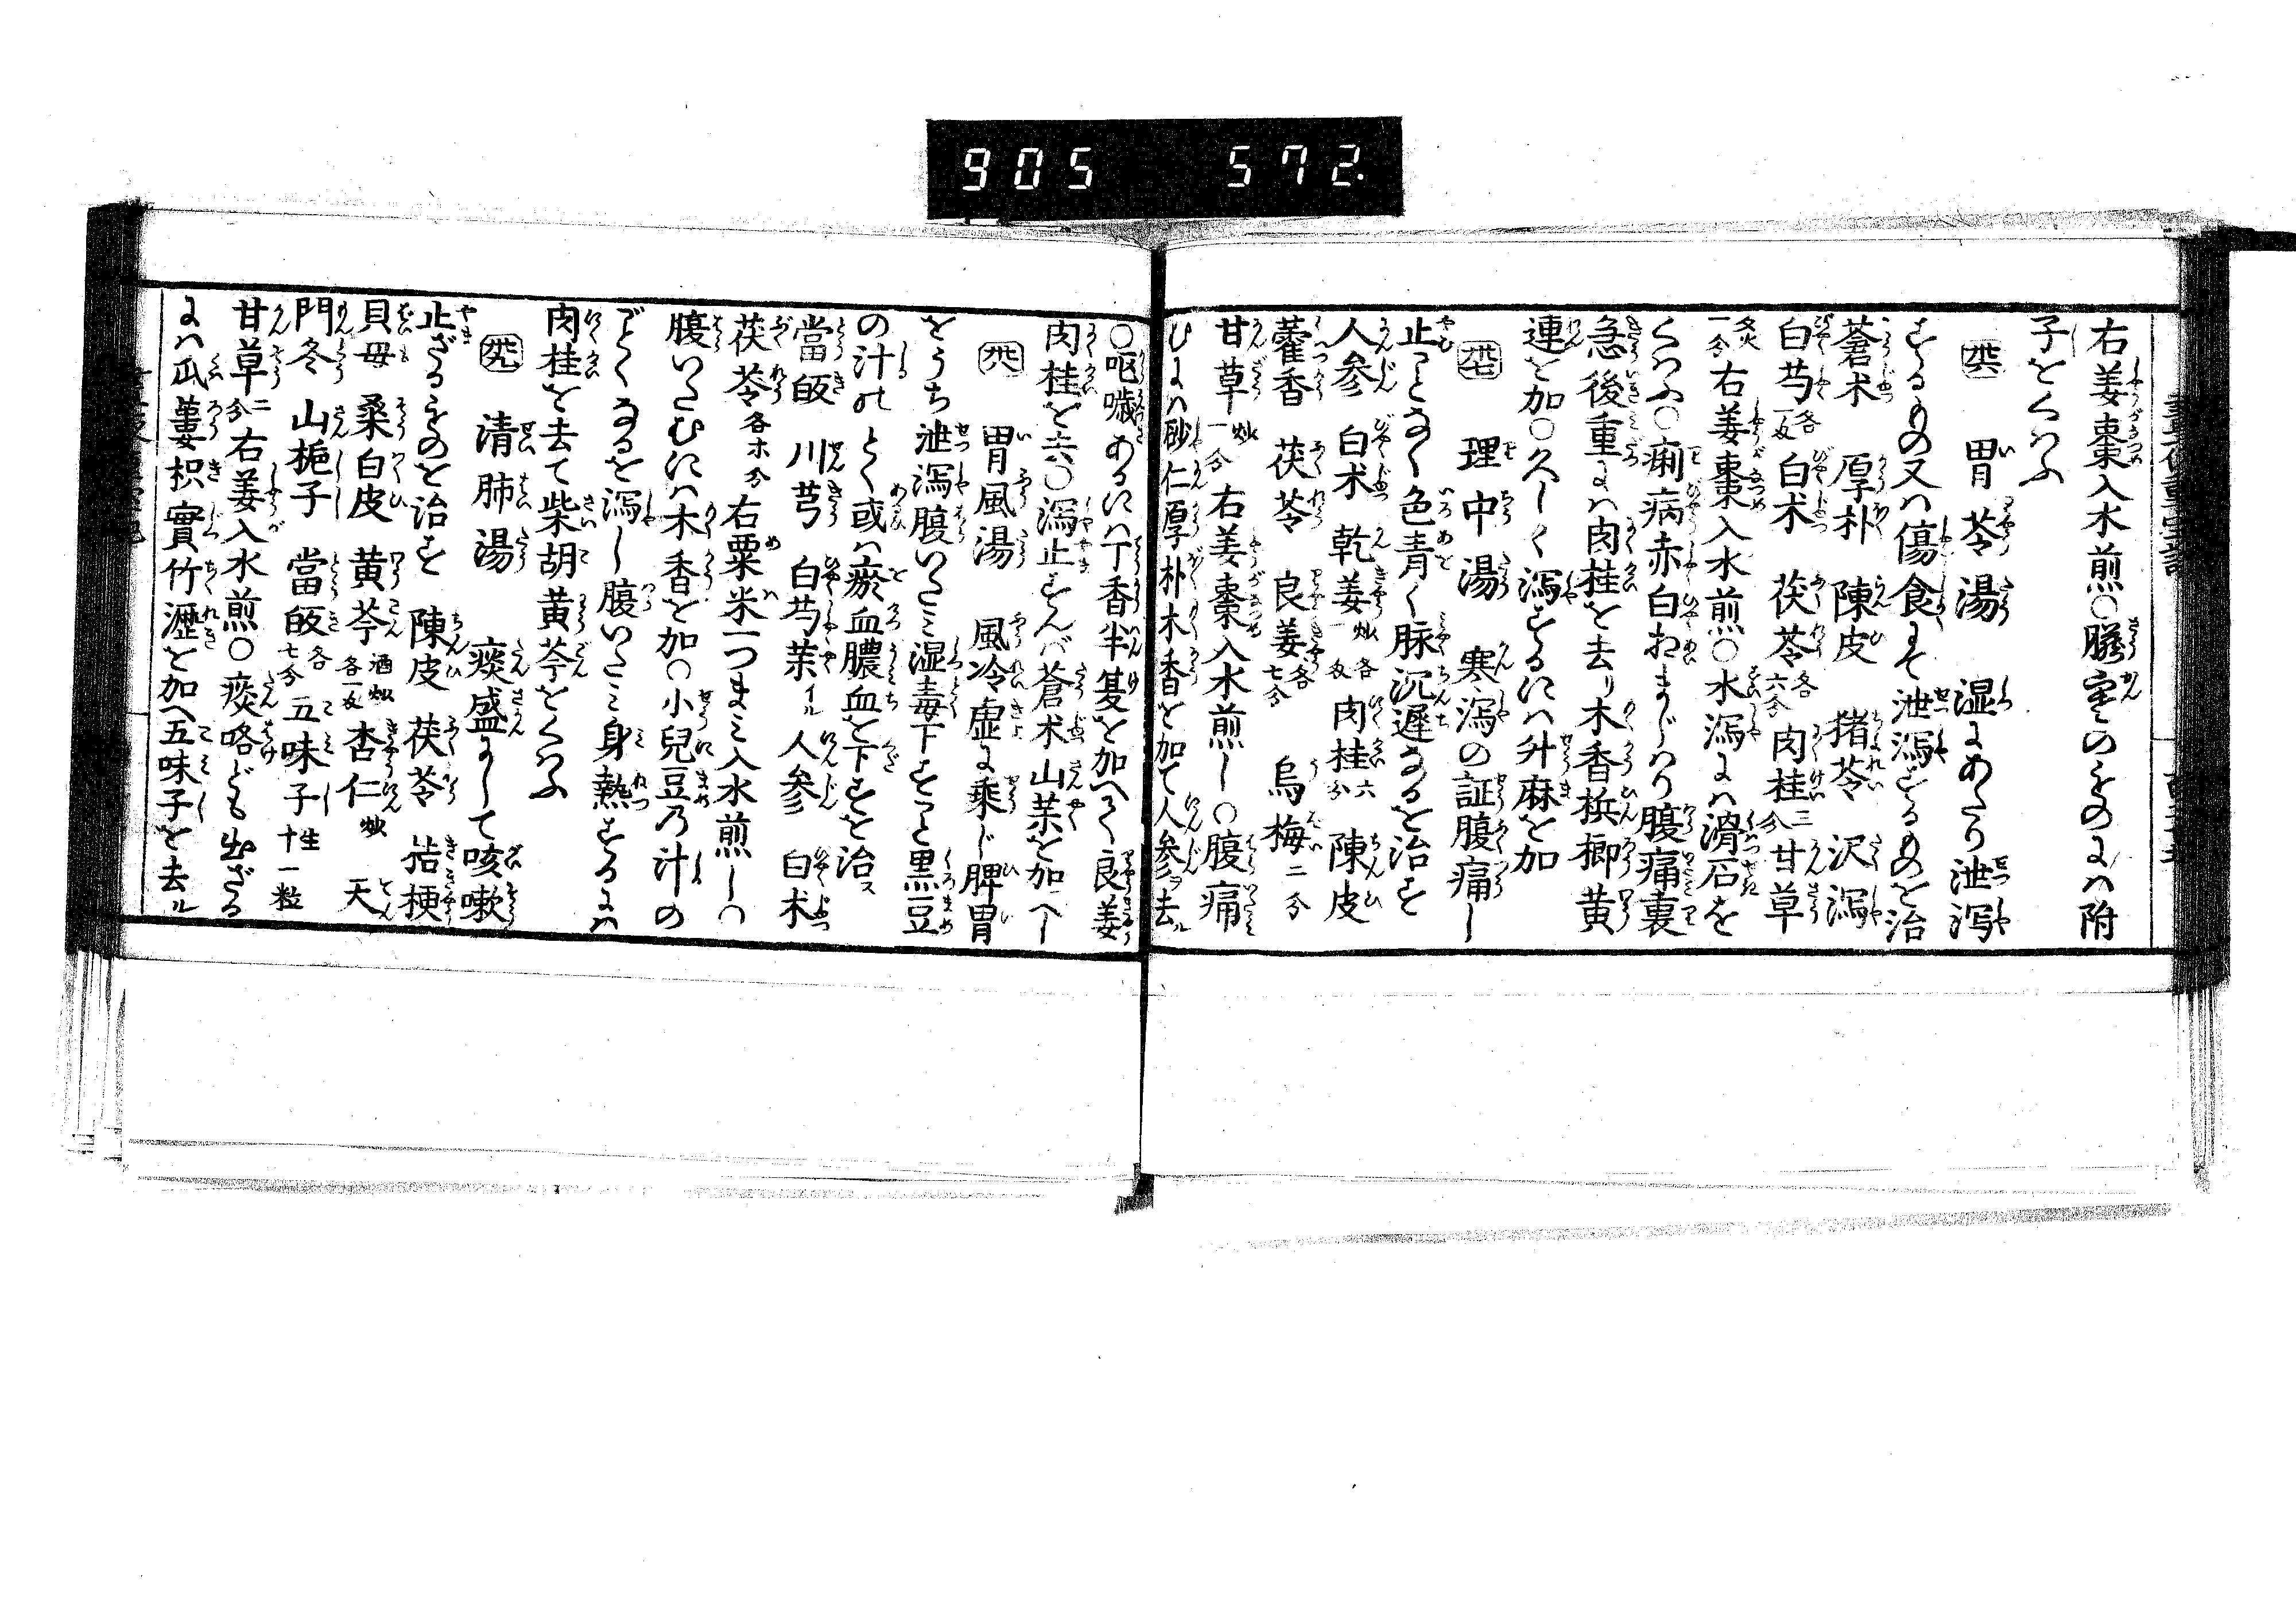 905 572.
右姜棗入水煎○臓寒のものには附
子をくはふ
胃苓湯 湿にあたり泄瀉
するもの又は傷食にて泄瀉するものを治
蒼朮 厚朴 陳皮 猪苓 沢瀉
白芍各一匁 白朮 茯苓各六分 肉桂三分 甘草
炙一分 右姜棗入水煎○水瀉には滑石を
くはふ○痢病赤白相まじはり腹痛裏
急後重には肉桂を去り木香梹榔黄
連を加○久しく瀉するには升麻を加
理中湯 寒瀉の証腹痛し
止ことなく色青く脉沉遅なるを治す
人参 白朮 乾姜炒一各匁 肉桂六分 陳皮
藿香 茯苓 良姜各七分 烏梅二分
甘草炒一分 右姜棗入水煎し○腹痛
ひには砂仁厚朴木香を加て人参ヲ去ル
○嘔噦あるには丁香半夏を加へて良姜
肉桂を去○瀉止ずんば蒼朮山薬を加へし
胃風湯 風冷虚に乗じ脾胃
をうち泄瀉腹いたミ湿毒下すこと黒豆
の汁のごとく或は瘀血膿血を下すを治ス
當皈 川芎 白芍薬イル 人参 白朮
茯苓各ホ分 右粟米一つまミ入水煎し○
腹いたむには木香を加○小兒豆乃汁の
ごとくなるを瀉し腹いたミ身熱するには
肉桂を去て柴胡黄芩をくはふ
清肺湯 痰盛にして咳嗽
止ざるものを治す 陳皮 茯苓 桔梗
貝母 桑白皮 黄芩酒炒各一匁 杏仁炒 天
門冬 山梔子 當皈各七分 五味子生十一粒
甘草二分 右姜入水煎○痰咯ども出ざる
には瓜蔞枳實竹瀝を加へ五味子を去ル